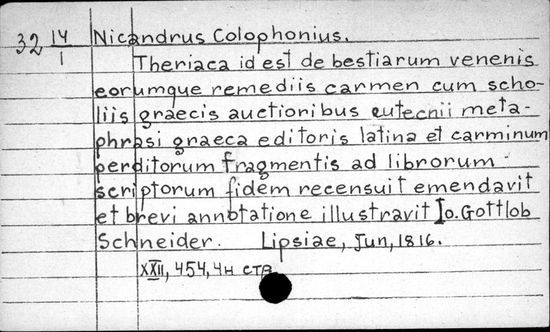 32 14/1 Nicandrus Colophonius.
Theriaca id est de bestiarum venenis
eorumque remediis carmen cum scho-
liis graecis auctioribus eutecnii meta-
phrasi graeca editoris latina et carminum
perditorum fragmentis ad librorum
scriptorum fidem recensuit emendavit
et brevi annotatione illustravit Io. Gottlob
Schneider. Lipsiae, Jun, 1816.
XXII, 454, 4н стр